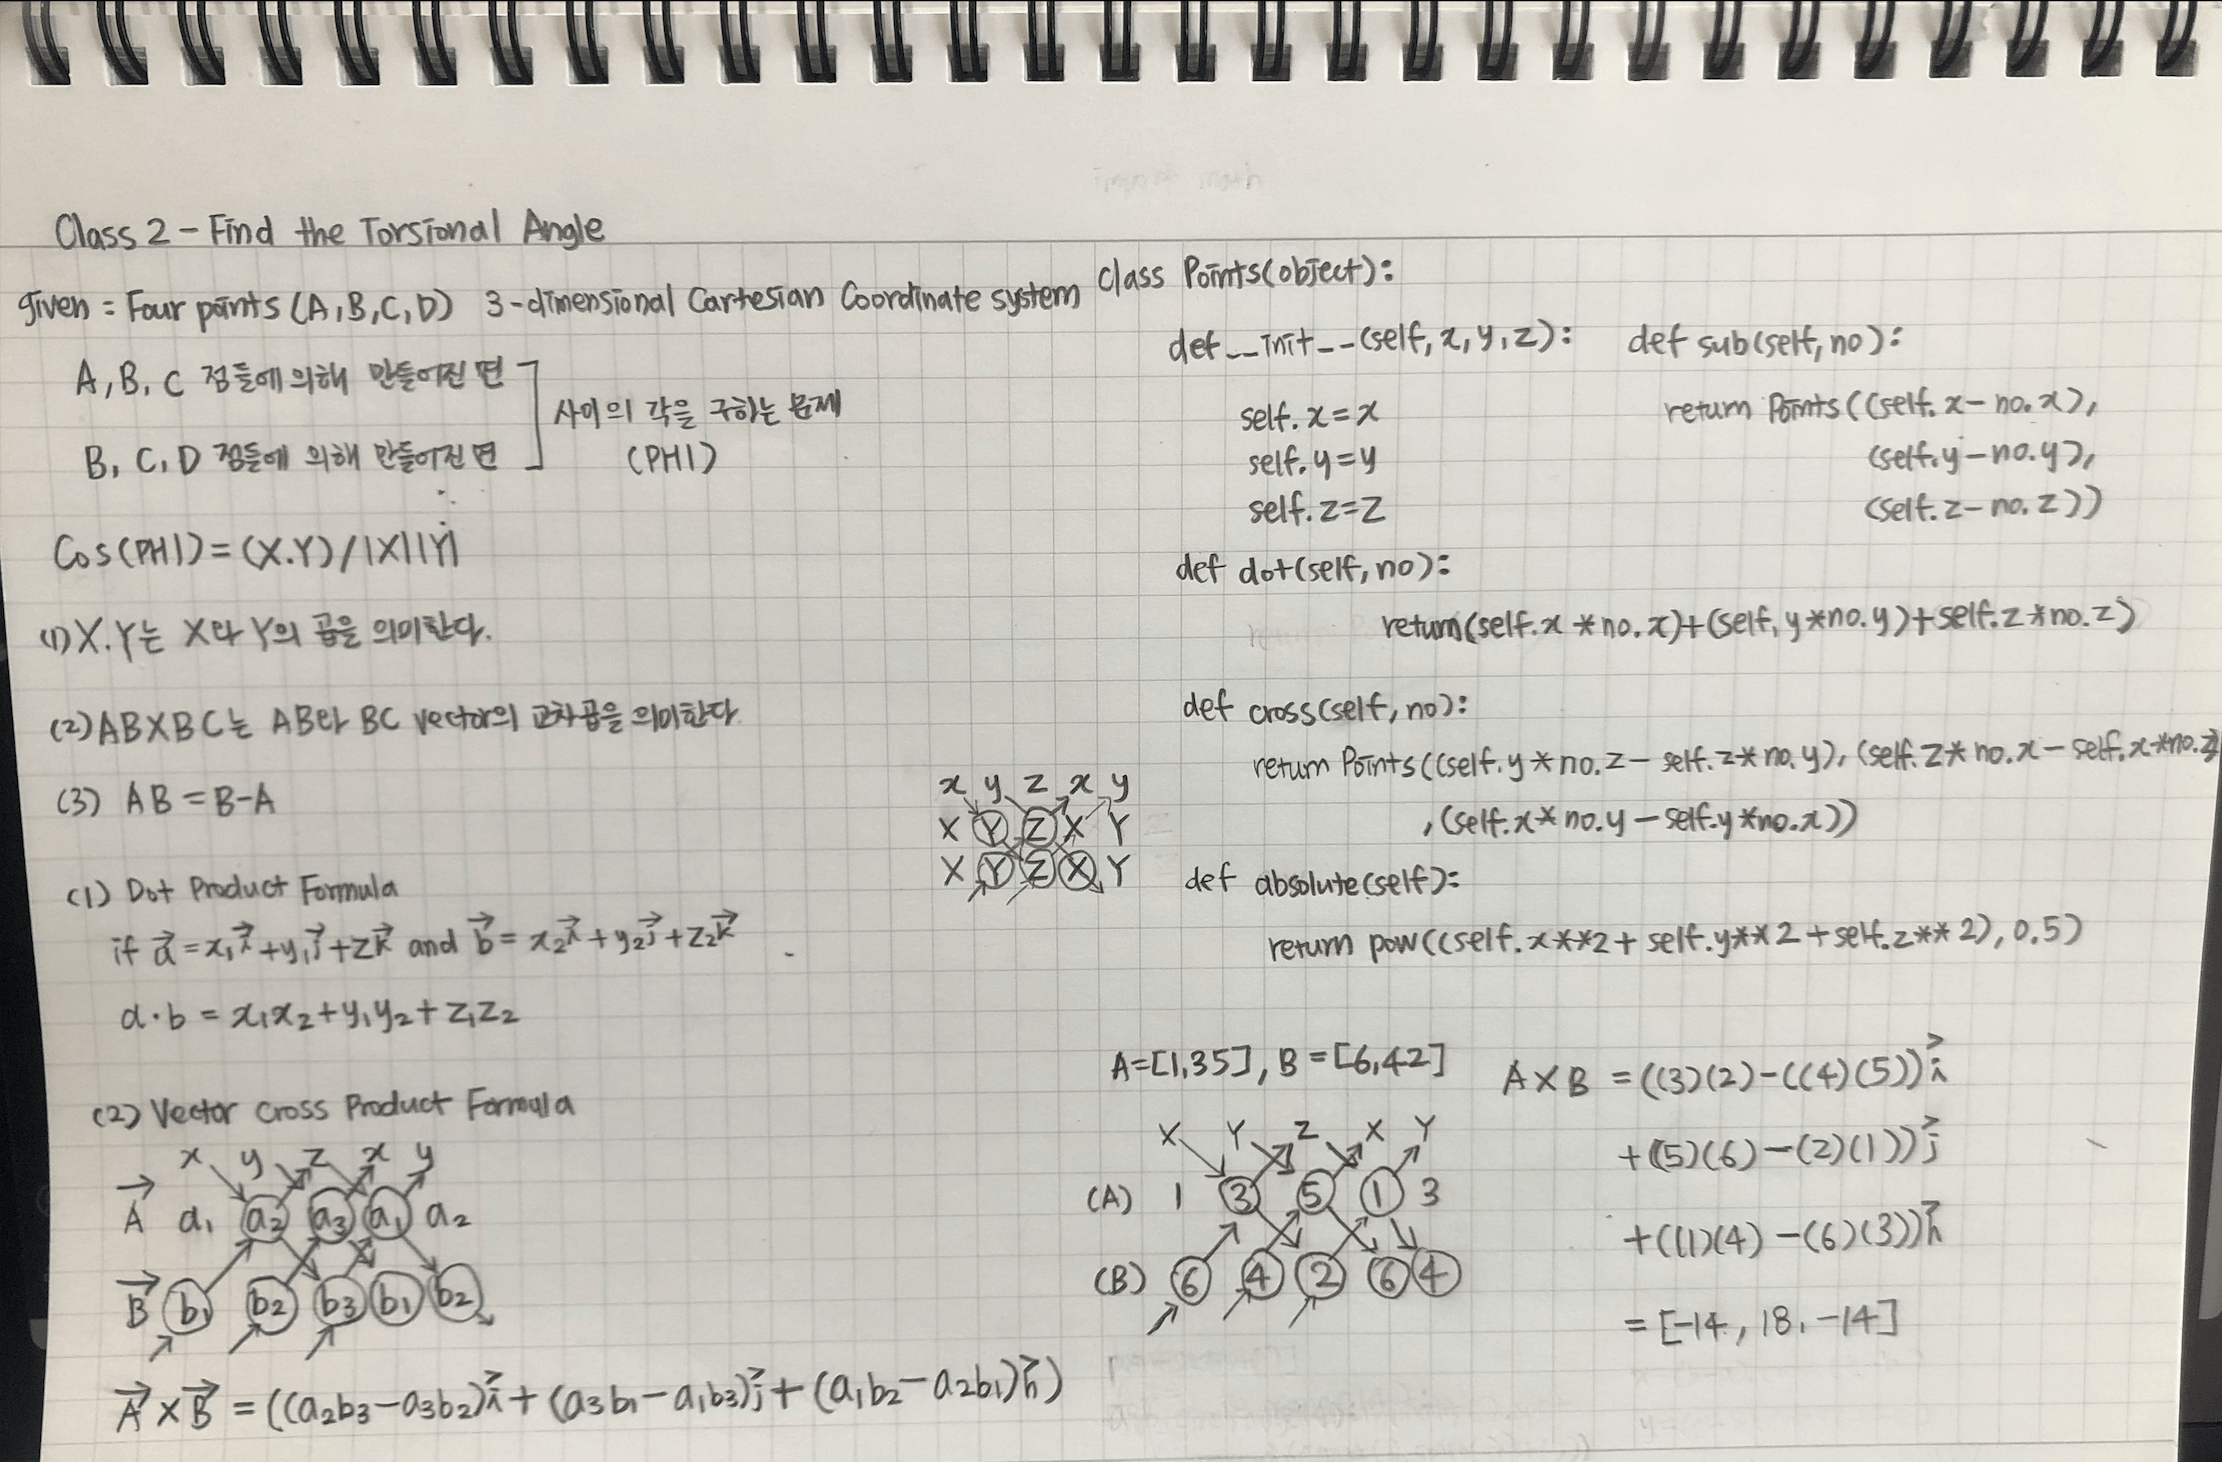 Class 2 - Find the Torsional Angle
given = Four points (A, B, C, D) 3-dimensional Cartesian Coordinate system
A, B, C 점들에 의해 만들어진 면
사이의 각을 구하는 문제
B, C, D 점들에 의해 만들어진 면
(PHI)
Cos(PHI) = (X.Y)/|X||Y|
(1) X.Y는 X와 Y의 곱을 의미한다.
(2) AB X BC는 AB와 BC vector의 교차곱을 의미한다.
(3) AB = B-A
x y z x y
X Y Z X Y
X Y Z X Y
(1) Dot Product Formula
if a⃗ = x₁i⃗ + y₁j⃗ + zk⃗ and b⃗ = x₂i⃗ + y₂j⃗ + z₂k⃗
a·b = x₁x₂ + y₁y₂ + z₁z₂
(2) Vector Cross Product Formula
x y z x y
A⃗ a₁ a₂ a₃ a₁ a₂
B⃗ b₁ b₂ b₃ b₁ b₂
A⃗ × B⃗ = ((a₂b₃ - a₃b₂)i⃗ + (a₃b₁ - a₁b₃)j⃗ + (a₁b₂ - a₂b₁)k⃗)
class Points(object):
def __init__(self, x, y, z):
self.x = x
self.y = y
self.z = z
def sub(self, no):
return Points((self.x - no.x),
(self.y - no.y),
(self.z - no.z))
def dot(self, no):
return(self.x * no.x)+(self.y * no.y)+self.z * no.z)
def cross(self, no):
return Points((self.y * no.z - self.z * no.y), (self.z * no.x - self.x * no.z)
, (self.x * no.y - self.y * no.x))
def absolute(self):
return pow((self.x**2 + self.y**2 + self.z**2), 0.5)
A=[1,35], B=[6,42]
X Y Z X Y
(A) 1 3 5 1 3
(B) 6 4 2 6 4
A × B = ((3)(2) - ((4)(5))i⃗
+ ((5)(6) - (2)(1))j⃗
+ ((1)(4) - (6)(3))k⃗
= [-14, 18, -14]